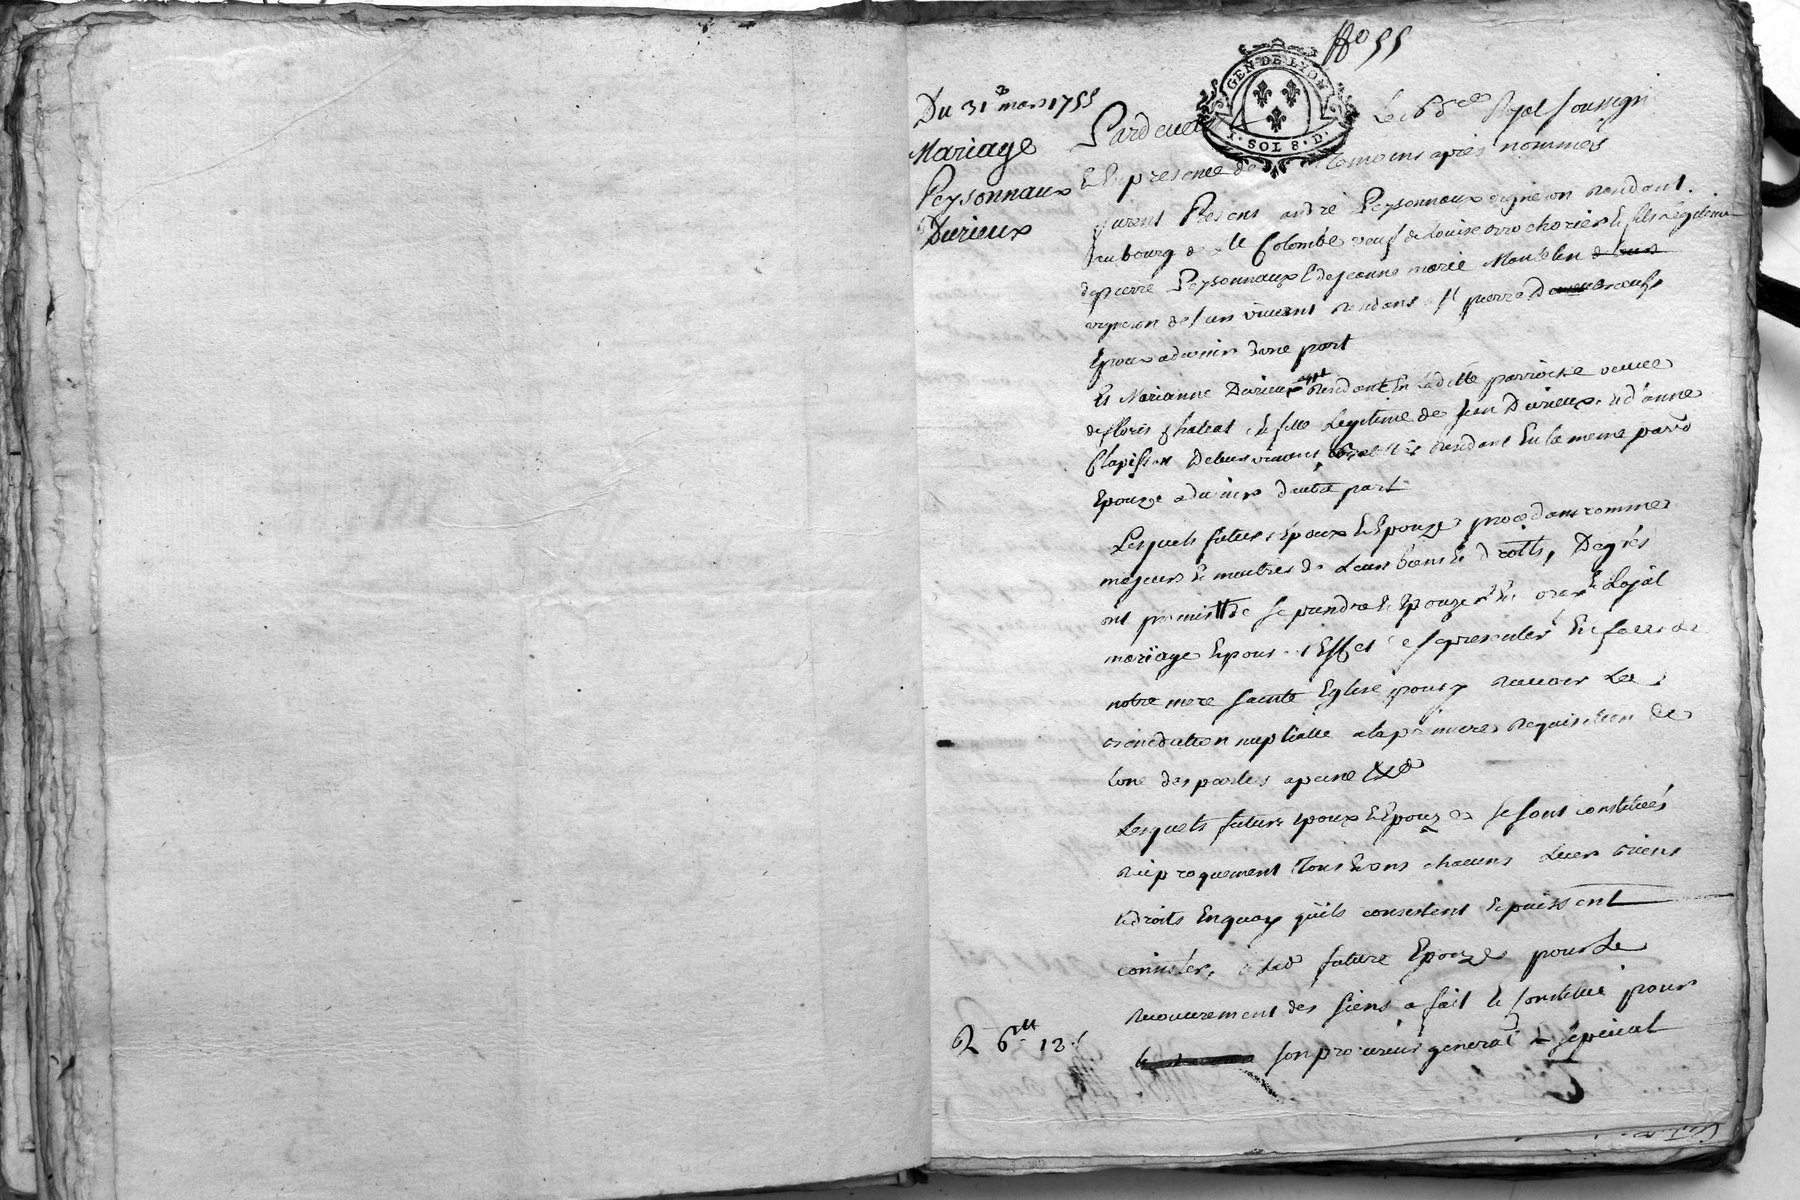 fo 55
GEN. DE LYON
1. SOL 8. D.
Du 31 mars 1755
Mariage
Peysonnaux
Durieux
Pardevant Le Royal soussigné
& En presence de temoins après nommés
furent Presens andré Peysonnaux vigneron Residant
au bourg de Ste Colombe veuf de Louise & fils Legitime
de pierre Peysonnaux & de jeanne marie
vigneron de son vivant st pierre
Epoux advenir d'une part
Et Marianne Durieux Residante En Ladite parroisse veuve
de floris & fille Legitime de Durieux & d'anne
Clapisson De leurs vivans Residant En la meme parro
Epouze advenir d'autre part
Lesquels futurs Epoux & Epouze procedans comme
majeurs & maitres de Leurs biens & droits, De grés
ont promis de se prendre & Epouzer En vray & Loyal
mariage & pour cet Effet se presenter En face de
notre mere sainte Eglise pour y Recevoir La
Benediction nuptialle a la premiere Requisition de
Lune des parties a peine &c
Lesquels futurs Epoux & Epouze se sont constitués
Reciproquement Tous & uns chacuns Leurs biens
& droits En quoy qu'ils consistent & puissent
consister, & lad future Epouze pour Le
Recouvrement des siens a fait & constitué pour
son procureur general & special
R 6 12 s